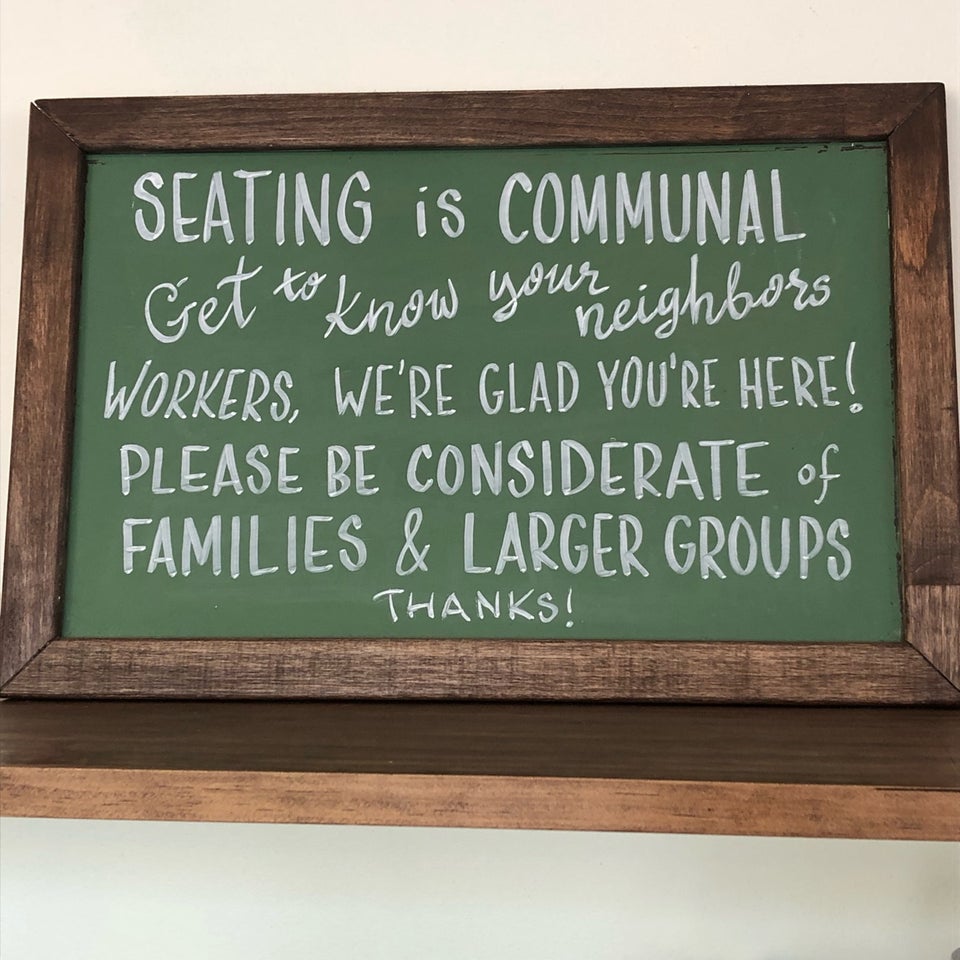 SEATING is COMMUNAL
Get to know your neighbors
WORKERS, WE'RE GLAD YOU'RE HERE!
PLEASE BE CONSIDERATE of
FAMILIES & LARGER GROUPS
THANKS!